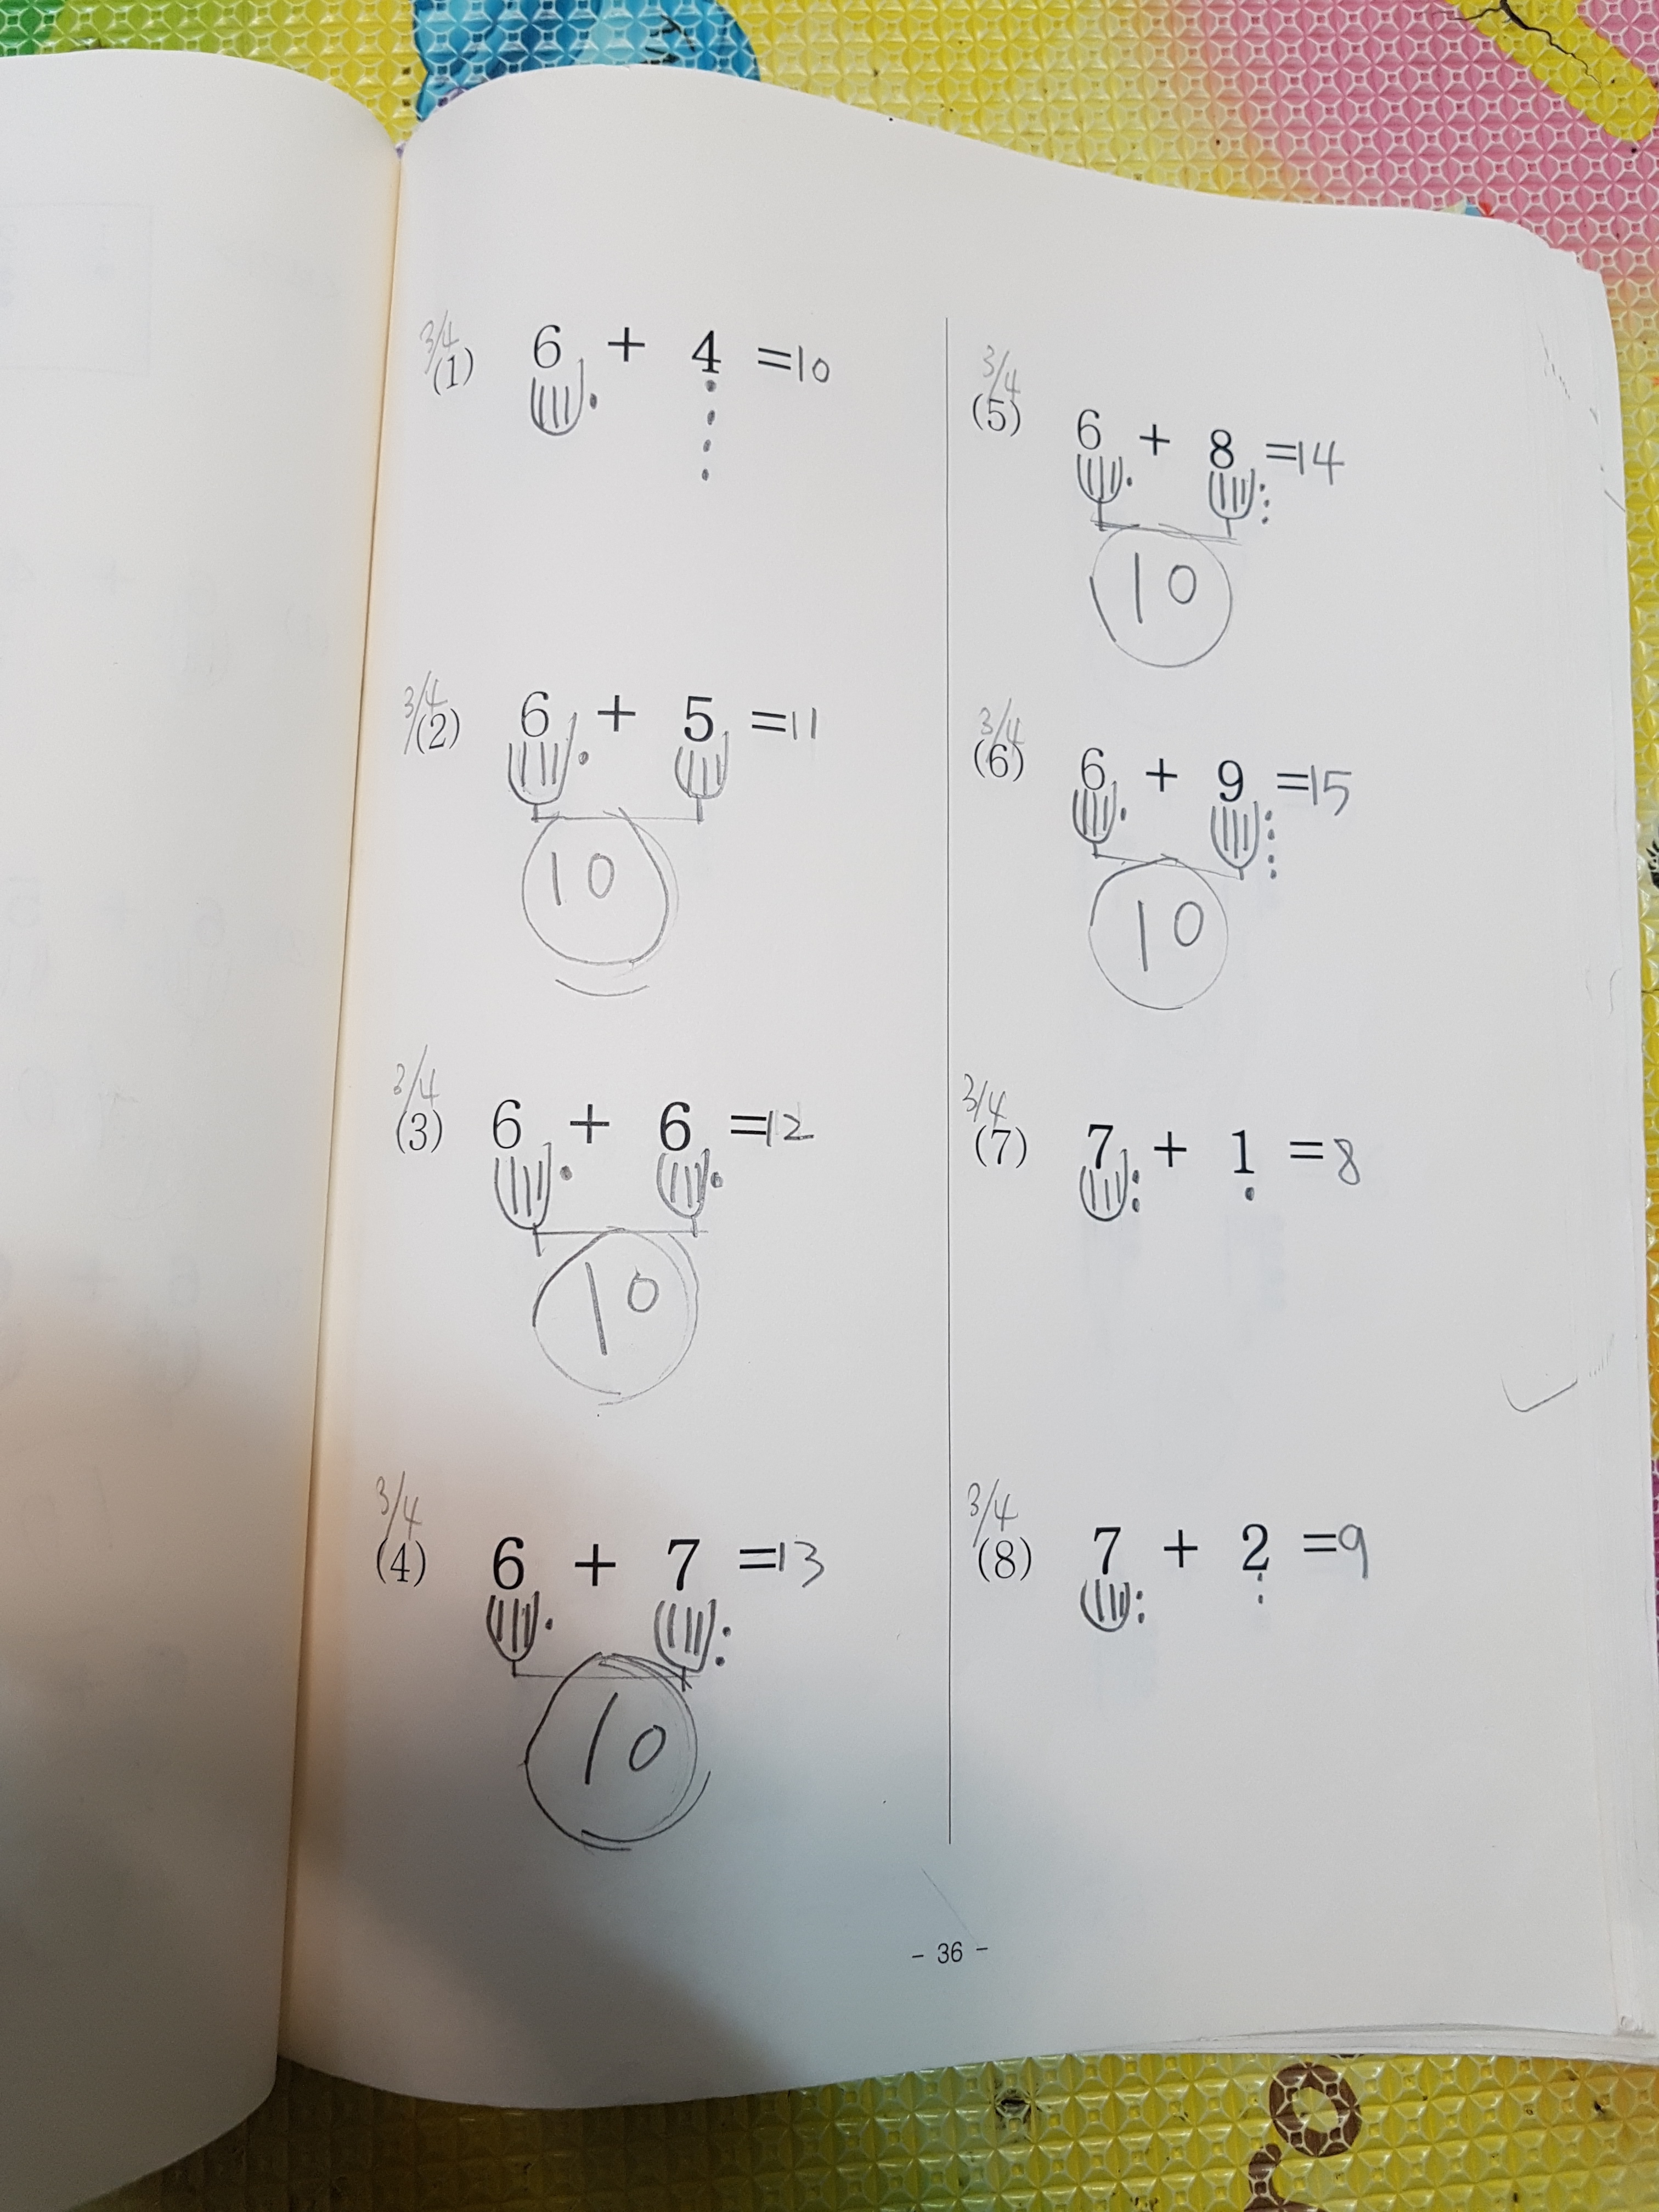 3/4
(1) 6 + 4 =10
3/4
(2) 6 + 5 =11
10
3/4
(3) 6 + 6 =12
10
3/4
(4) 6 + 7 =13
10
3/4
(5) 6 + 8 =14
10
3/4
(6) 6 + 9 =15
10
3/4
(7) 7 + 1 =8
3/4
(8) 7 + 2 =9
- 36 -